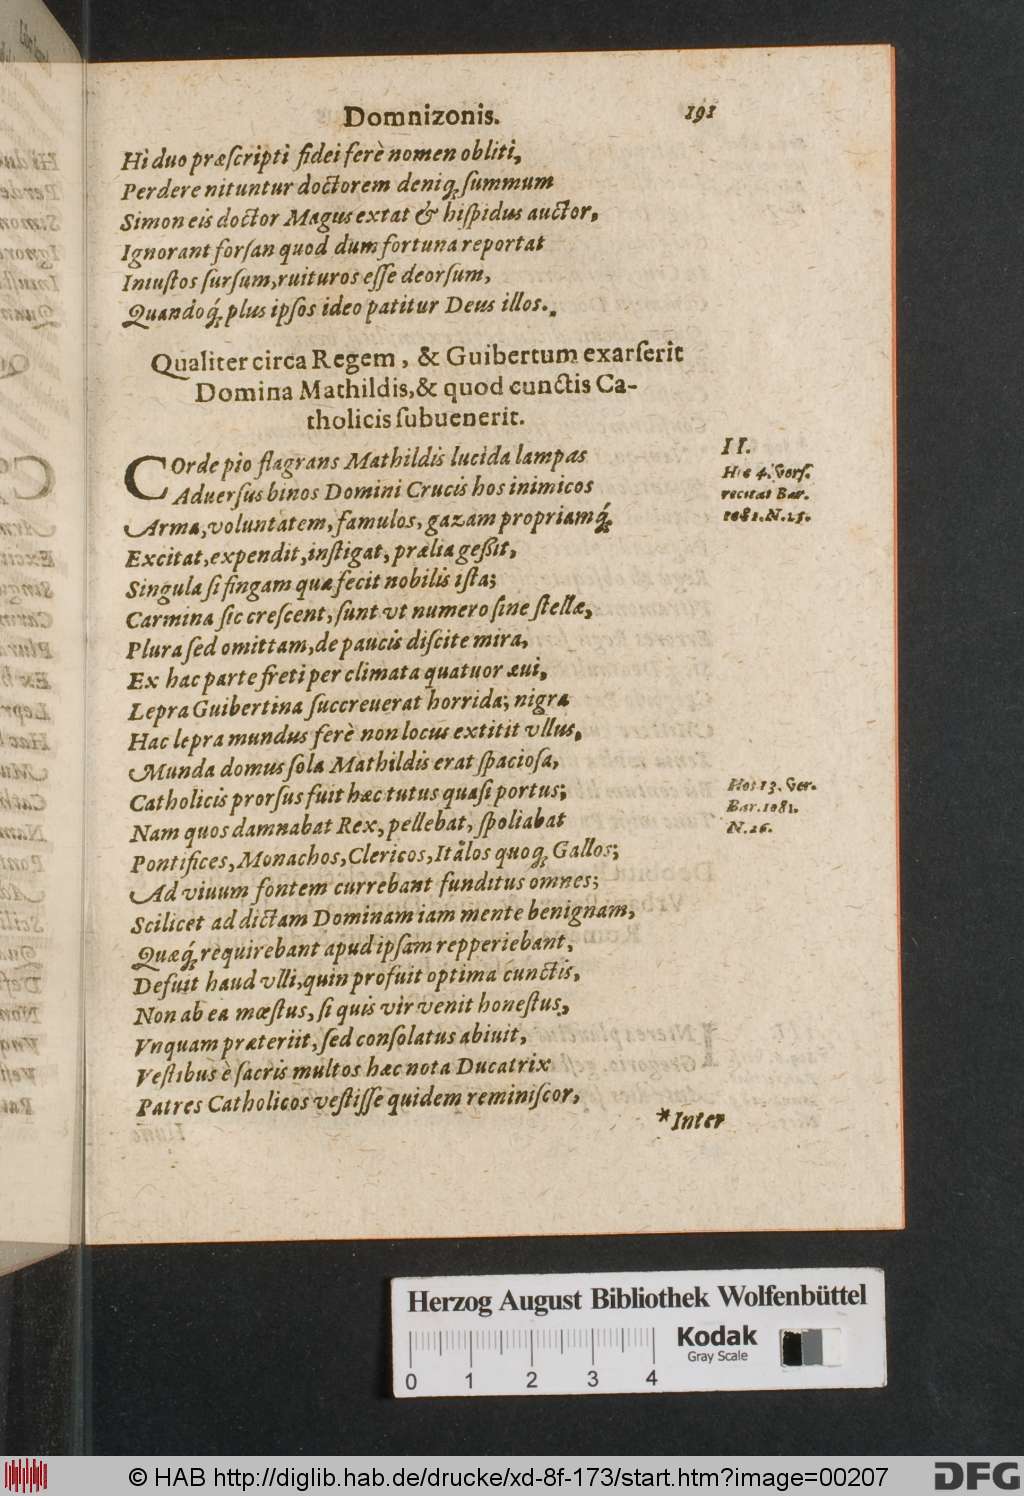 Domnizonis. 191
Hi duo præſcripti fidei ferè nomen obliti,
Perdere nituntur doctorem deniq; ſummum
Simon eis doctor Magus extat & hiſpidus auctor,
Ignorant forſan quod dum fortuna reportat
Iniuſtos ſurſum, ruituros eſſe deorſum,
Quandoq́; plus ipſos ideo patitur Deus illos.
Qualiter circa Regem, & Guibertum exarſerit
Domina Mathildis, & quod cunctis Ca-
tholicis ſubuenerit.
COrde pio flagrans Mathildis lucida lampas
Aduerſus binos Domini Crucis hos inimicos
Arma, voluntatem, famulos, gazam propriamq́;
Excitat, expendit, inſtigat, prælia geßit,
Singula ſi fingam quæ fecit nobilis iſta;
Carmina ſic creſcent, ſunt vt numero ſine ſtellæ,
Plura ſed omittam, de paucis diſcite mira,
Ex hac parte freti per climata quatuor æui,
Lepra Guibertina ſuccreuerat horrida; nigra
Hac lepra mundus ferè non locus extitit vllus,
Munda domus ſola Mathildis erat ſpacioſa,
Catholicis prorſus fuit hæc tutus quaſi portus;
Nam quos damnabat Rex, pellebat, ſpoliabat
Pontifices, Monachos, Clericos, Itàlos quoq; Gallos;
Ad viuum fontem currebant funditus omnes;
Scilicet ad dictam Dominam iam mente benignam,
Quæq́; requirebant apud ipſam repperiebant,
Defuit haud vlli, quin profuit optima cunctis,
Non ab ea mœſtus, ſi quis vir venit honeſtus,
Vnquam præteriit, ſed conſolatus abiuit,
Veſtibus è ſacris multos hæc nota Ducatrix
Patres Catholicos veſtiſſe quidem reminiſcor,
*Inter
II.
Hos 4. verſ.
recitat Bar.
1081. N. 25.
Hos 13. Ver.
Bar. 1081.
N. 26.
Herzog August Bibliothek Wolfenbüttel
Kodak
Gray Scale
0 1 2 3 4
© HAB http://diglib.hab.de/drucke/xd-8f-173/start.htm?image=00207
DFG